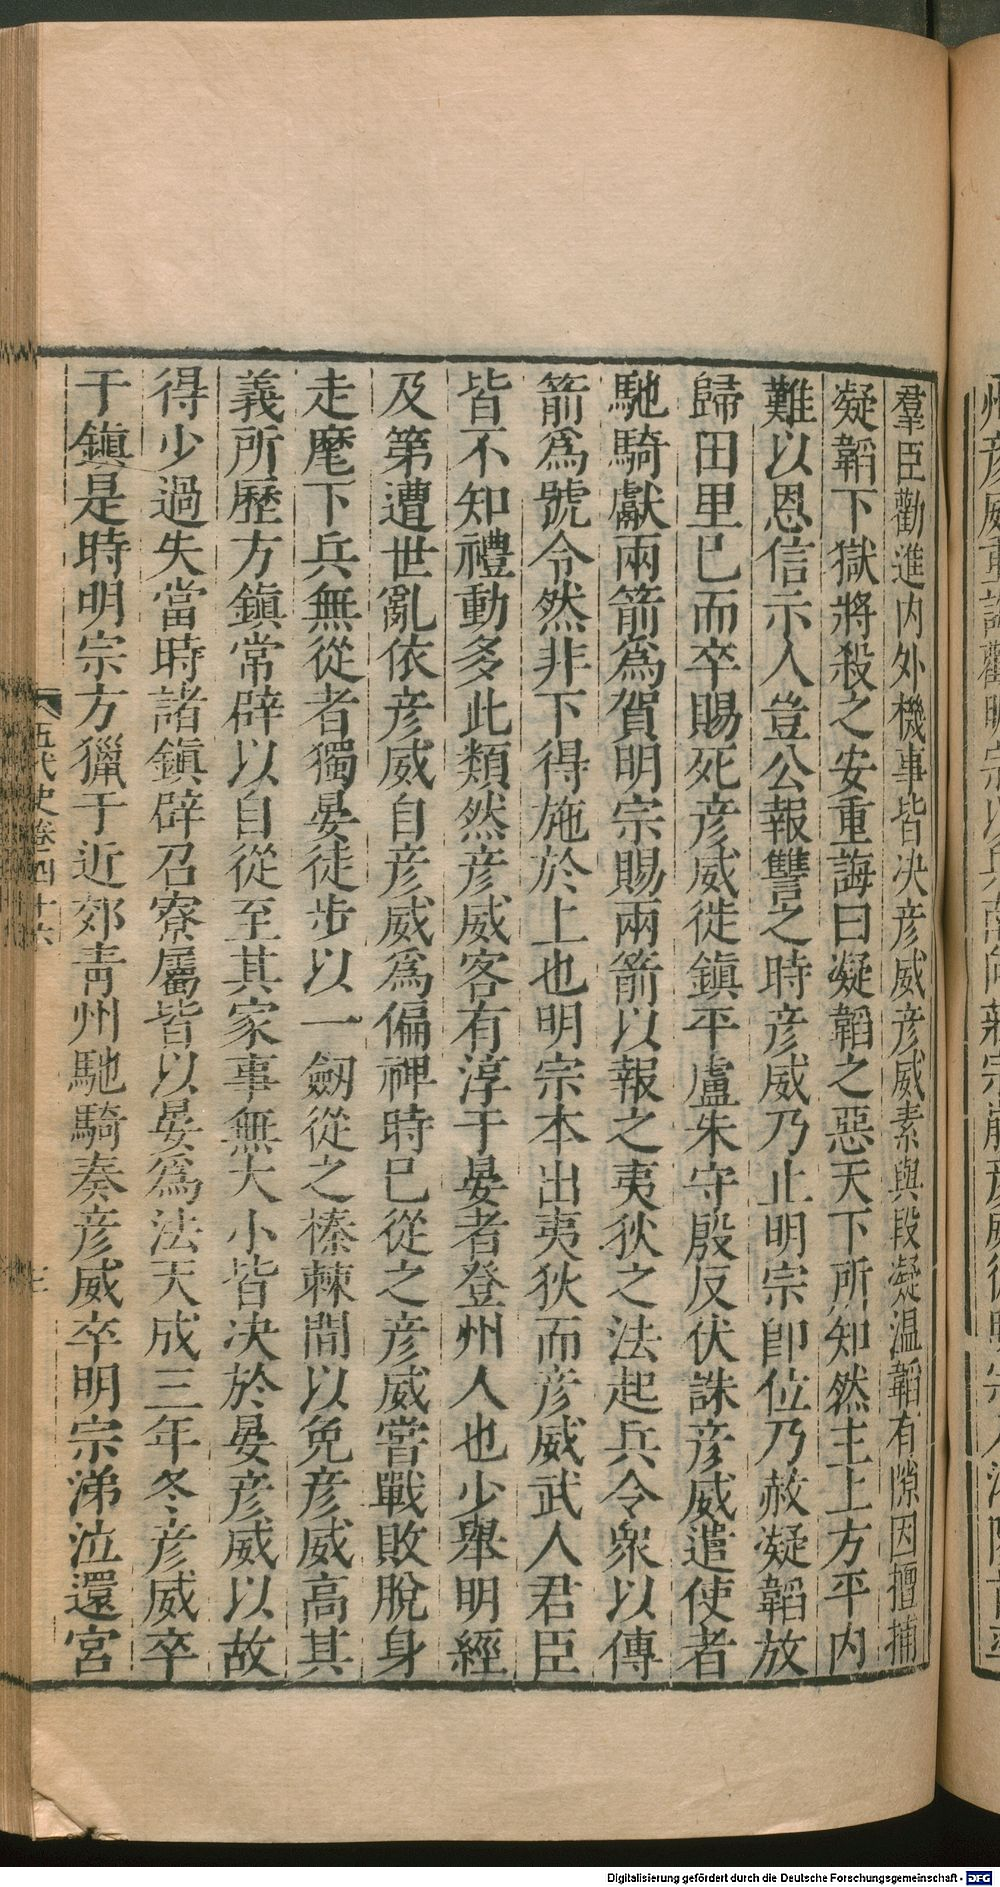 羣臣勸進內外機事皆决彦威彦威素與段凝温韜有隙因擅捕
凝韜下獄將殺之安重誨曰凝韜之惡天下所知然主上方平內
難以恩信示人豈公報讐之時彦威乃止明宗卽位乃赦凝韜放
歸田里已而卒賜死彦威徙鎭平盧朱守殷反伏誅彦威遣使者
馳騎獻兩箭爲賀明宗賜兩箭以報之夷狄之法起兵令衆以傳
箭爲號令然非下得施於上也明宗本出夷狄而彦威武人君臣
皆不知禮動多此類然彦威客有淳于晏者登州人也少舉明經
及第遭世亂依彦威自彦威爲偏裨時已從之彦威嘗戰敗脫身
走麾下兵無從者獨晏徒步以一劔從之榛棘間以免彦威高其
義所歷方鎭常辟以自從至其家事無大小皆决於晏彦威以故
得少過失當時諸鎭辟召寮屬皆以晏爲法天成三年冬彦威卒
于鎭是時明宗方獵于近郊靑州馳騎奏彦威卒明宗涕泣還宮
五代史卷四十六
七
Digitalisierung gefördert durch die Deutsche Forschungsgemeinschaft - DFG